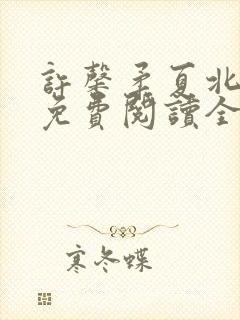 許馨矛夏北
免費閱讀全
寒冬蝶